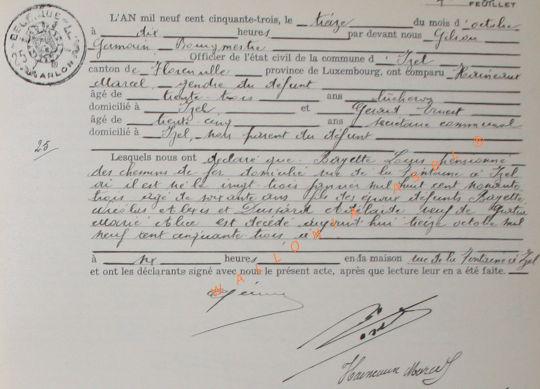 FEUILLET
L'AN mil neuf cent cinquante-trois, le treize du mois d'octobre
à dix heures par devant nous Gilson
Germain Bourgmestre
Officier de l'état civil de la commune d'Izel
canton de Florenville province de Luxembourg, ont comparu
Marcel, gendre du défunt
âgé de trente trois ans bûcheron
domicilié à Izel et Gérard Ernest
âgé de trente cinq ans secrétaire communal
domicilié à Izel, non parent du défunt
25
Lesquels nous ont déclaré que Bayette Louis pensionné
des chemins de fer domicilié rue de la Fontaine à Izel
où il est né le vingt trois janvier mil huit cent nonante
trois âgé de soixante ans fils des époux défunts Bayette
Nicolas et Adélaïde veuf de
Marie Alice est décédé aujourd'hui treize octobre mil
neuf cent cinquante trois à
à six heures en sa maison rue de la Fontaine à Izel
et ont les déclarants signé avec nous le présent acte, après que lecture leur en a été faite.
Marcel
BELGIQUE
ARLON
WALLONIE